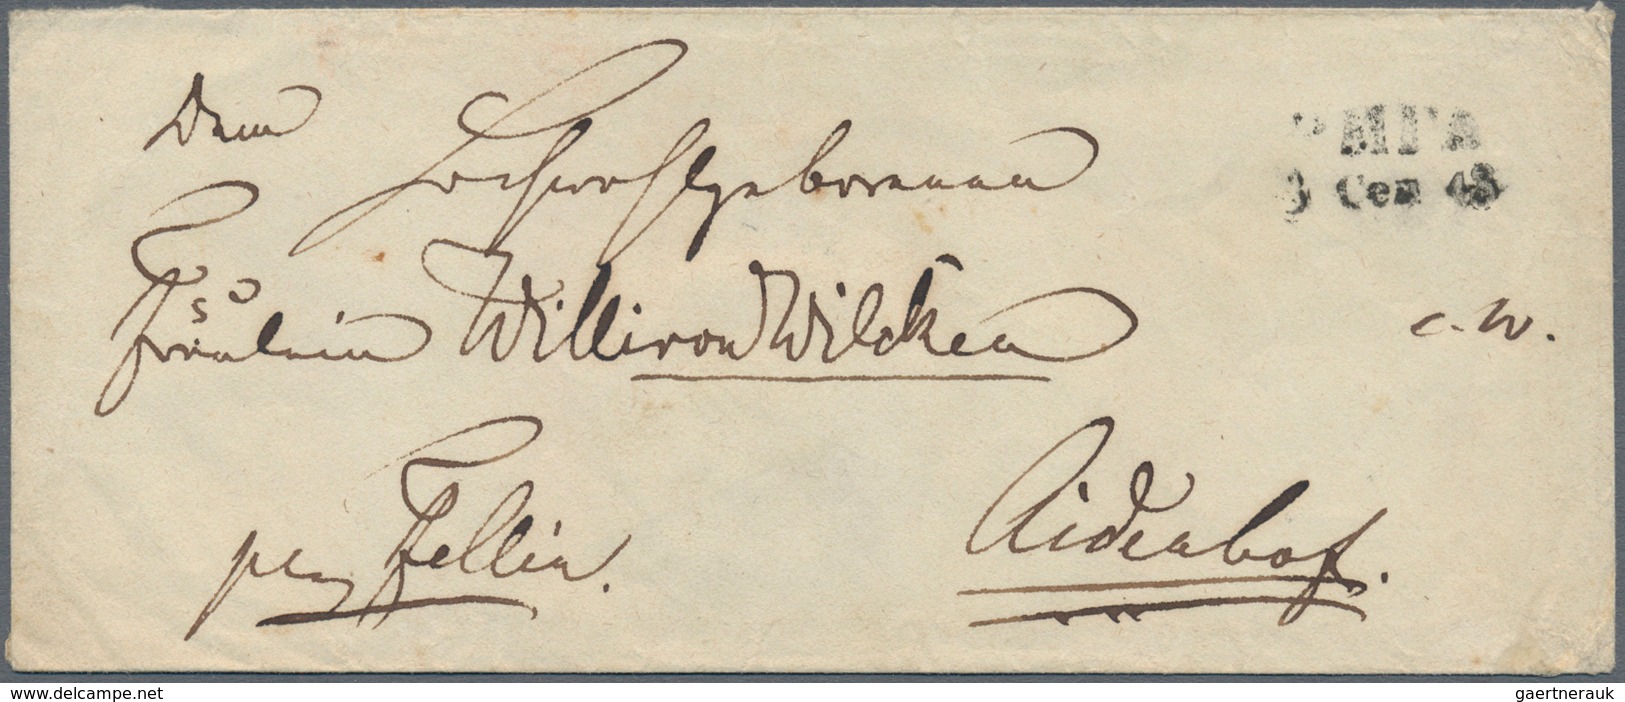 Dem
Hochwohlgeborenen
РИГА
3 Сен 48
Fräulein Willi von Wilcken
c. W.
per Fellin.
Aidenhof.
www.delcampe.net
gaertnerauk